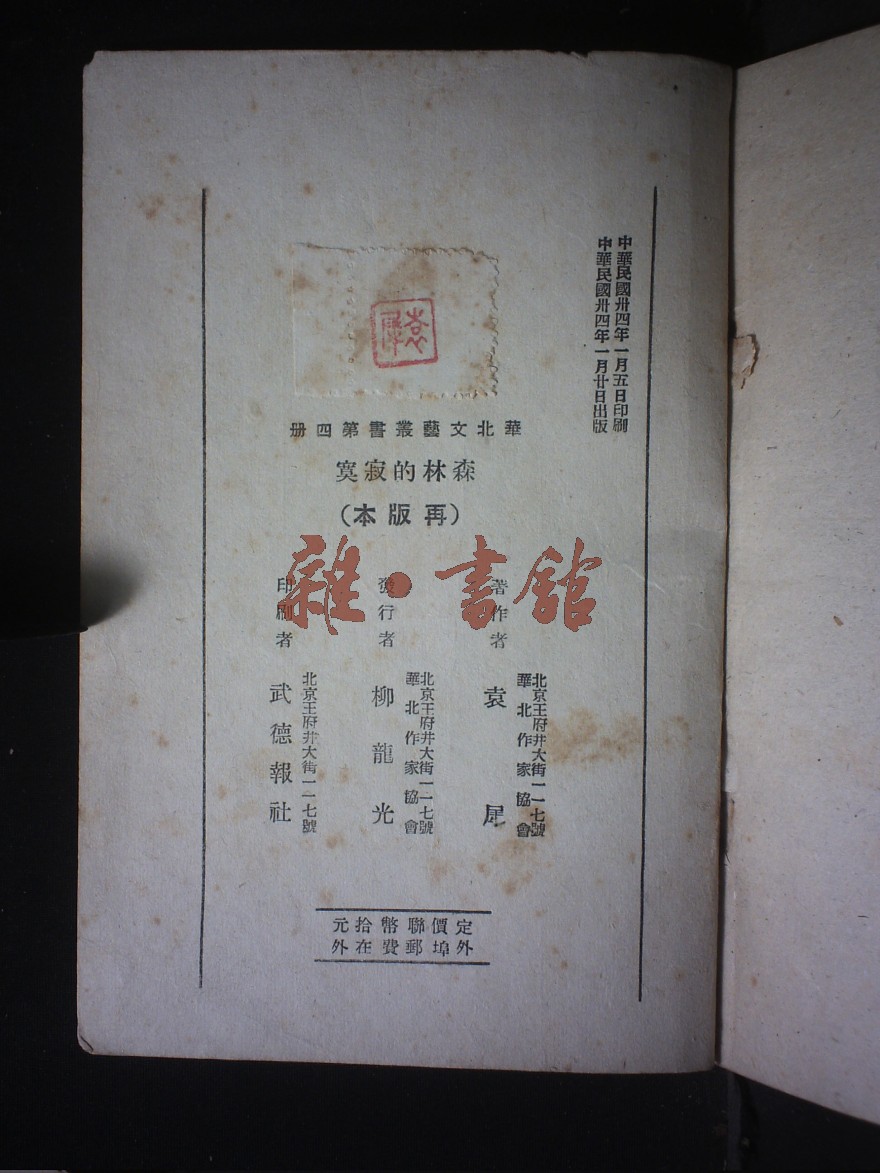 中華民國卅四年一月五日印刷
中華民國卅四年一月廿日出版
華北文藝叢書第四册
森林的寂寞
(再版本)
雜·書館
著作者
北京王府井大街一一七號
華北作家協會
袁犀
發行者
北京王府井大街一一七號
華北作家協會
柳龍光
印刷者
北京王府井大街一一七號
武德報社
定價聯幣拾元
外埠郵費在外